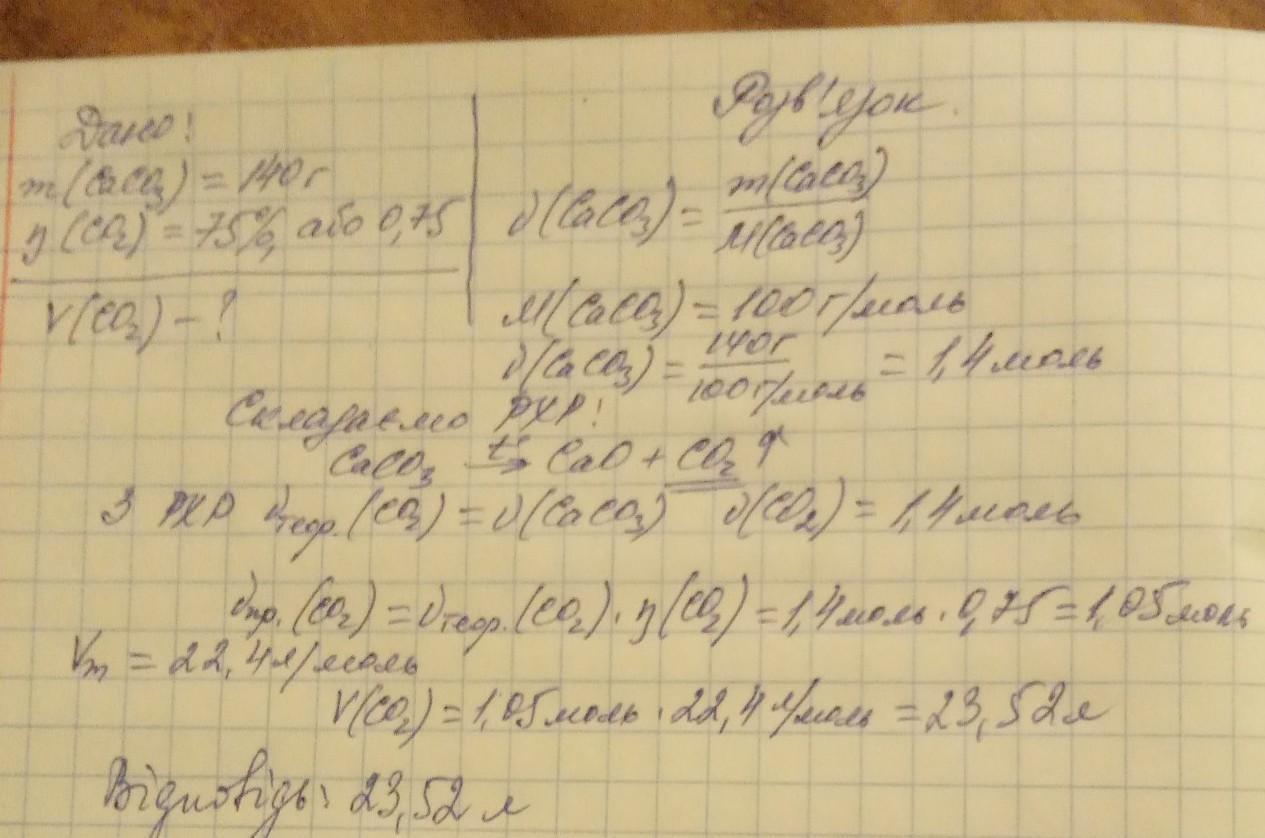 Дано:
m(CaCO₃) = 140 г
η(CO₂) = 75%, або 0,75
V(CO₂) – ?
Розв'язок.
ν(CaCO₃) = m(CaCO₃) / M(CaCO₃)
M(CaCO₃) = 100 г/моль
ν(CaCO₃) = 140 г / 100 г/моль = 1,4 моль
Складаємо РХР:
CaCO₃ t°→ CaO + CO₂ ↑
З РХР νтеор.(CO₂) = ν(CaCO₃) ν(CO₂) = 1,4 моль
νпр.(CO₂) = νтеор.(CO₂) · η(CO₂) = 1,4 моль · 0,75 = 1,05 моль
Vm = 22,4 л/моль
V(CO₂) = 1,05 моль · 22,4 л/моль = 23,52 л
Відповідь: 23,52 л